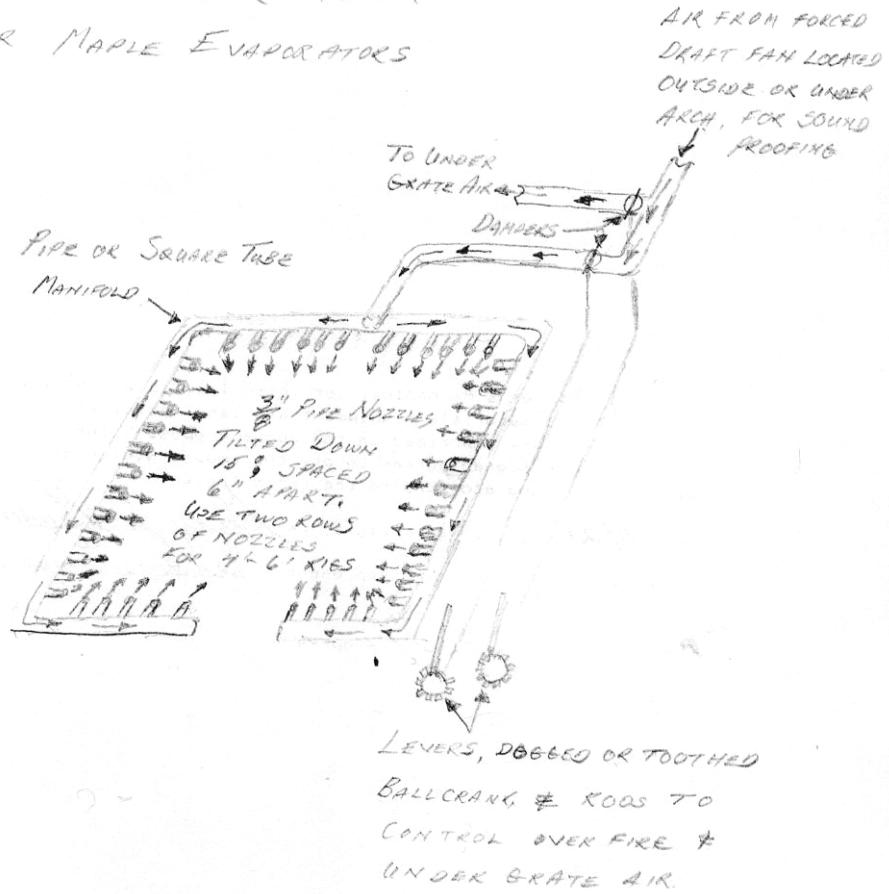 R MAPLE EVAPORATORS
AIR FROM FORCED
DRAFT FAN LOCATED
OUTSIDE OR UNDER
ARCH, FOR SOUND
PROOFING
TO UNDER
GRATE AIR
DAMPERS
PIPE OR SQUARE TUBE
MANIFOLD
3/8" PIPE NOZZLES,
TILTED DOWN
15°, SPACED
6" APART.
USE TWO ROWS
OF NOZZLES
FOR 4'-6' RIGS
LEVERS, DOGGED OR TOOTHED
BALLCRANK, & RODS TO
CONTROL OVER FIRE &
UNDER GRATE AIR.